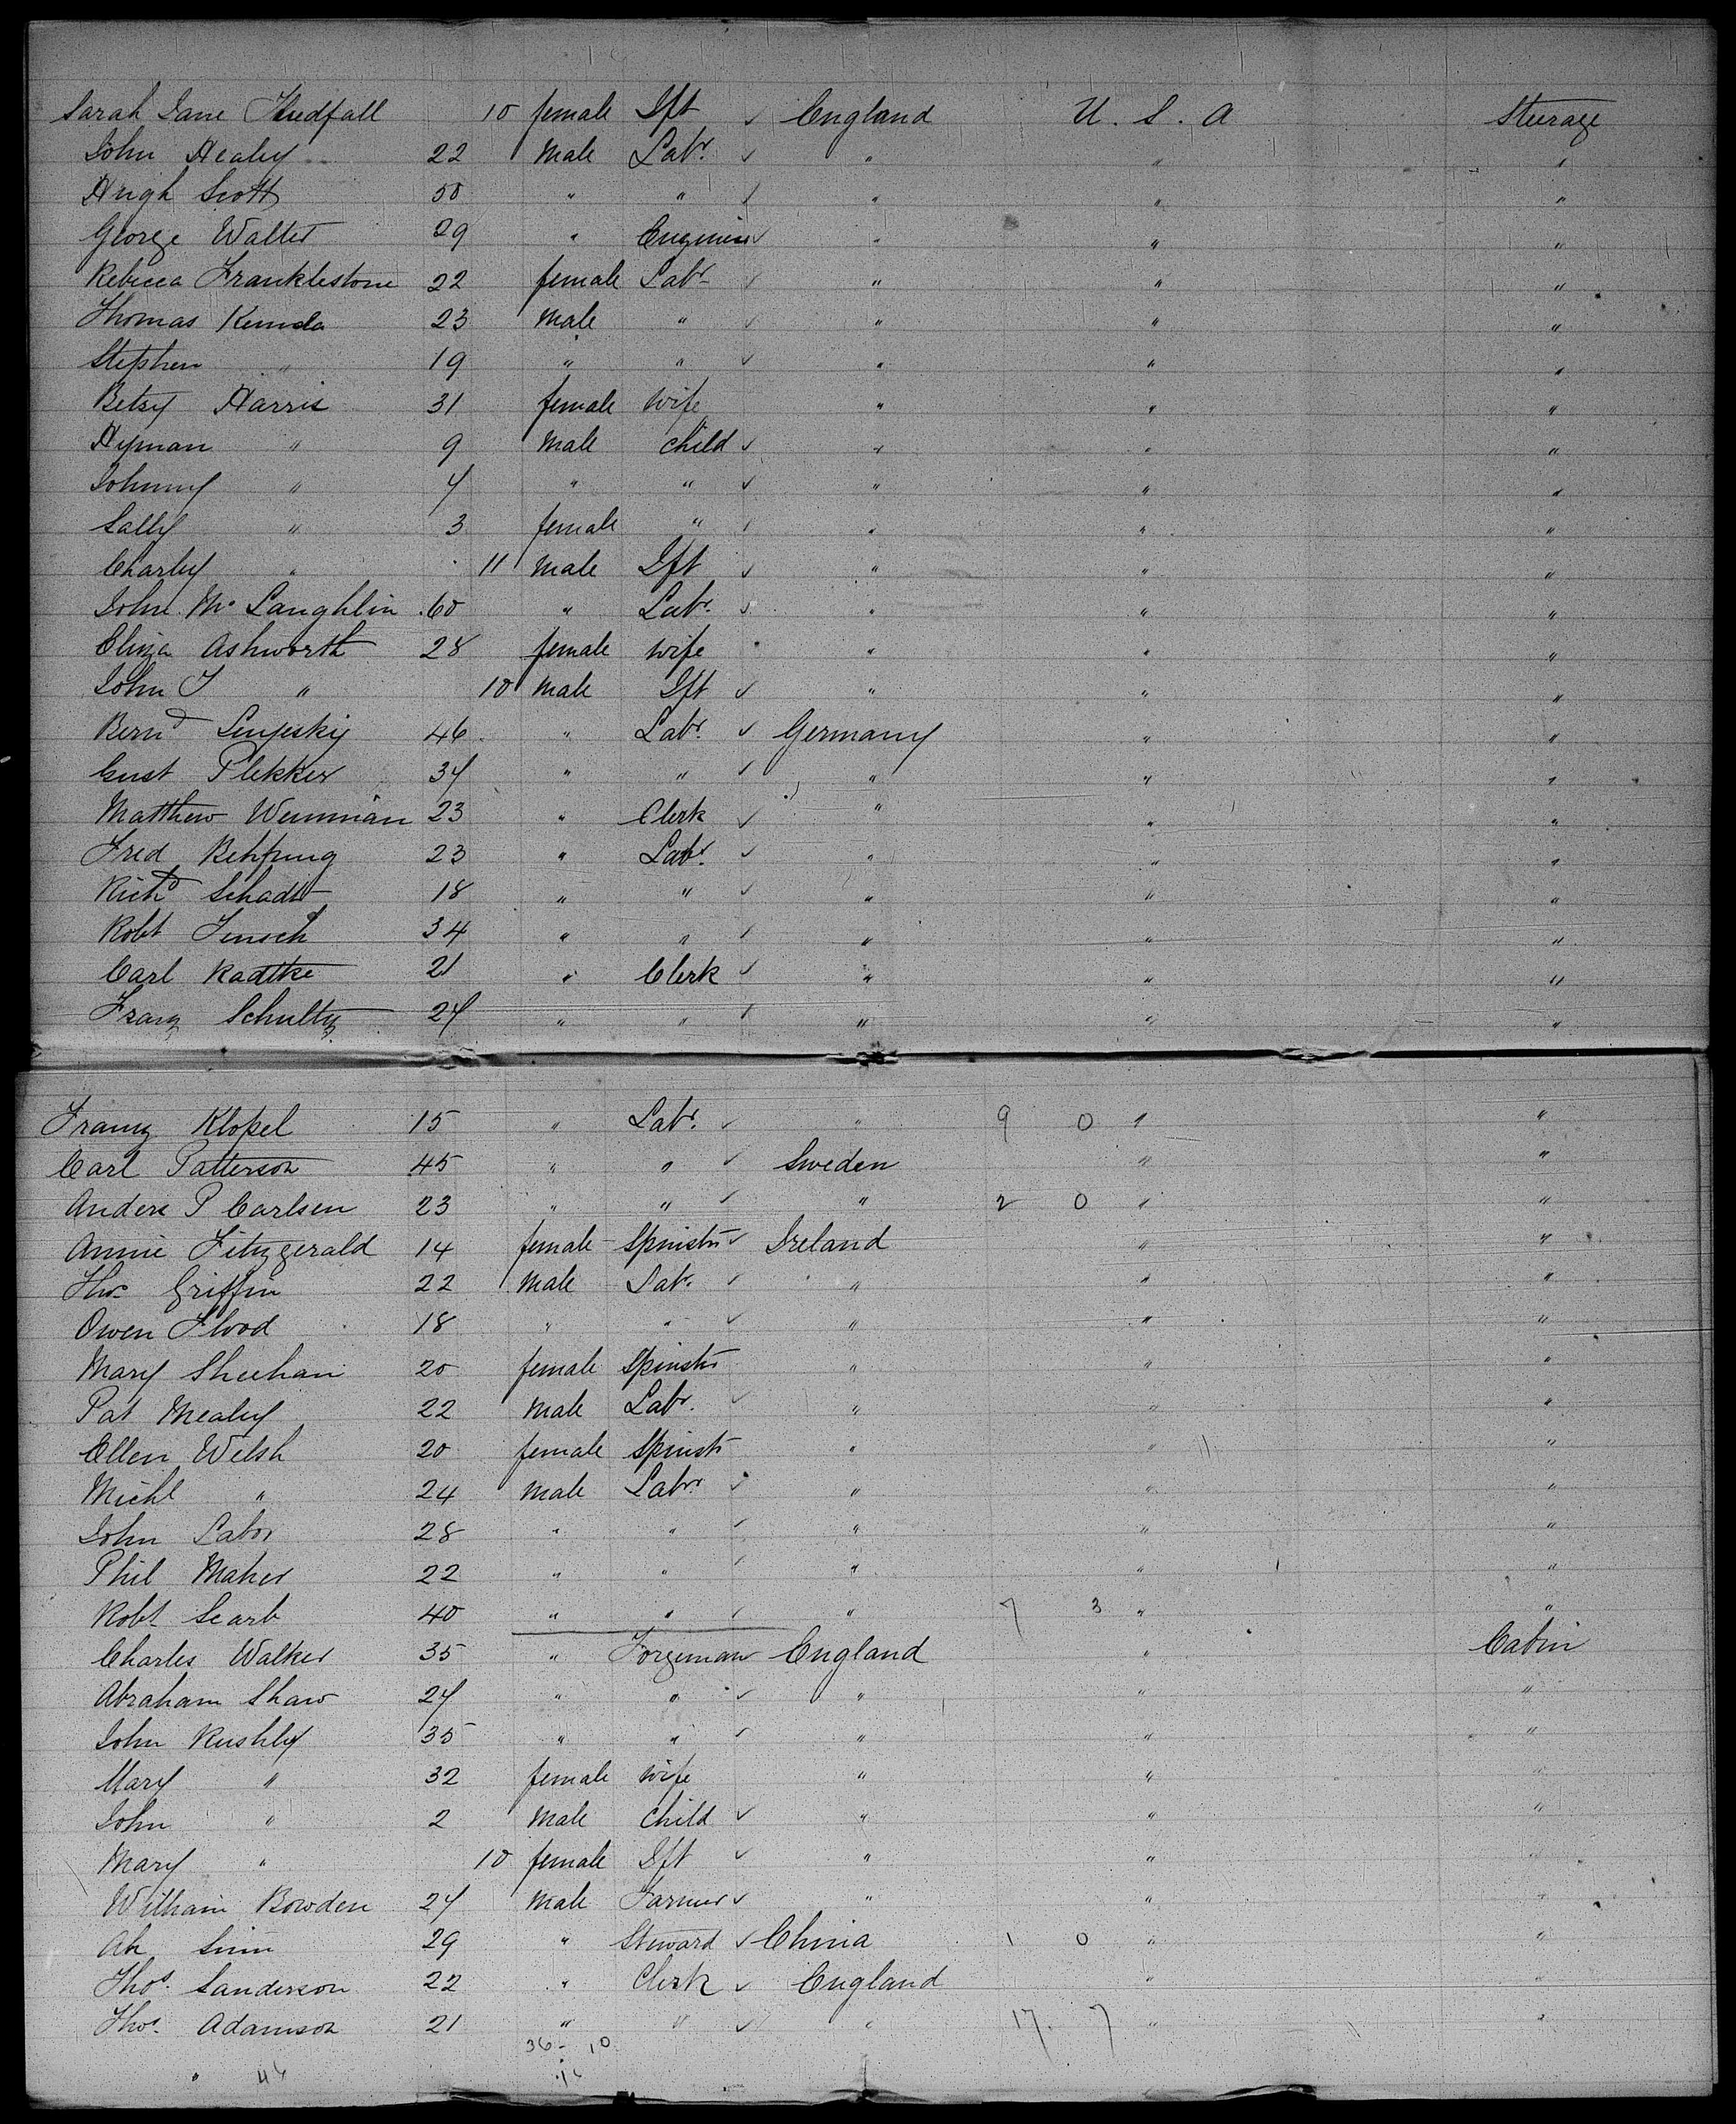 Sarah Jane Thedfall 10 female Ift ✓ England U.S.A Steerage
John Healey 22 male Labr. ✓ " " "
Hugh Scott 50 " " ✓ " " "
George Walter 29 " Engineer ✓ " " "
Rebecca Franklestone 22 female Labr ✓ " " "
Thomas Kemda 23 male " ✓ " " "
Stephen " 19 " " ✓ " " "
Betsy Harris 31 female wife " " "
Hyman " 9 male child ✓ " " "
Johnny " 4 " " ✓ " " "
Sally " 3 female " ✓ " " "
Charley " 11 male Ift ✓ " " "
John McLaughlin 60 " Labr. ✓ " " "
Eliza Ashworth 28 female wife " " "
John T " 10 male Ift ✓ " " "
Bernd 46 " Labr. ✓ Germany " "
Gust Plekker 34 " " ✓ " " "
Matthew Wenman 23 " Clerk ✓ " " "
Fred 23 " Labr. ✓ " " "
Richd Schadt 18 " " ✓ " " "
Robt Jensch 34 " " ✓ " " "
Carl Radtke 21 " Clerk ✓ " " "
Franz Schultz 24 " " ✓ " " "
Franz Klopel 15 " Labr. ✓ " 9 0 " "
Carl Patterson 45 " " ✓ Sweden " "
Anders P Carlsen 23 " " ✓ " 2 0 " "
Annie Fitzgerald 14 female Spinstr ✓ Ireland " "
Thos Griffin 22 male Labr. ✓ " " "
Owen Flood 18 " " ✓ " " "
Mary Sheehan 20 female Spinstr " " "
Pat Mealey 22 male Labr. ✓ " " "
Ellen Welsh 20 female Spinstr " " "
Michl " 24 male Labr. ✓ " " "
John Labor 28 " " ✓ " " "
Phil Maher 22 " " ✓ " " "
Robt Scarb 40 " " ✓ " 7 3 " "
Charles Walker 35 " Forgeman England " Cabin
Abraham Shaw 24 " " ✓ " " "
John Rushby 35 " " ✓ " " "
Mary " 32 female wife " " "
John " 2 male child ✓ " " "
Mary " 10 female Ift ✓ " " "
William Bowden 24 male Farmer ✓ " " "
Ah Sim 29 " Steward ✓ China 1 0 " "
Thos. Sanderson 22 " Clerk ✓ England " "
Thos. Adamson 21 " " ✓ " 17. 7 " "
36 - 10
" 46